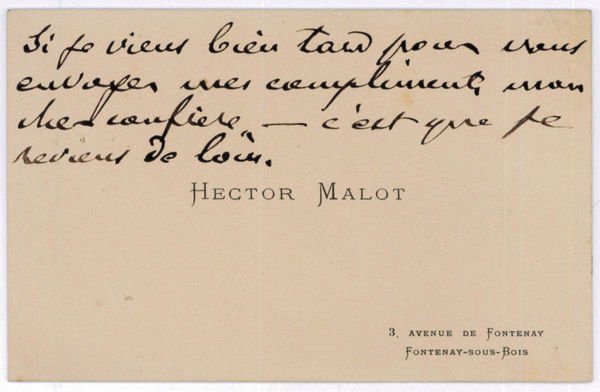 Si je viens bien tard pour vous
envoyer mes compliments, mon
cher confrère, — c'est que je
reviens de loin.
HECTOR MALOT
3, AVENUE DE FONTENAY
FONTENAY-SOUS-BOIS